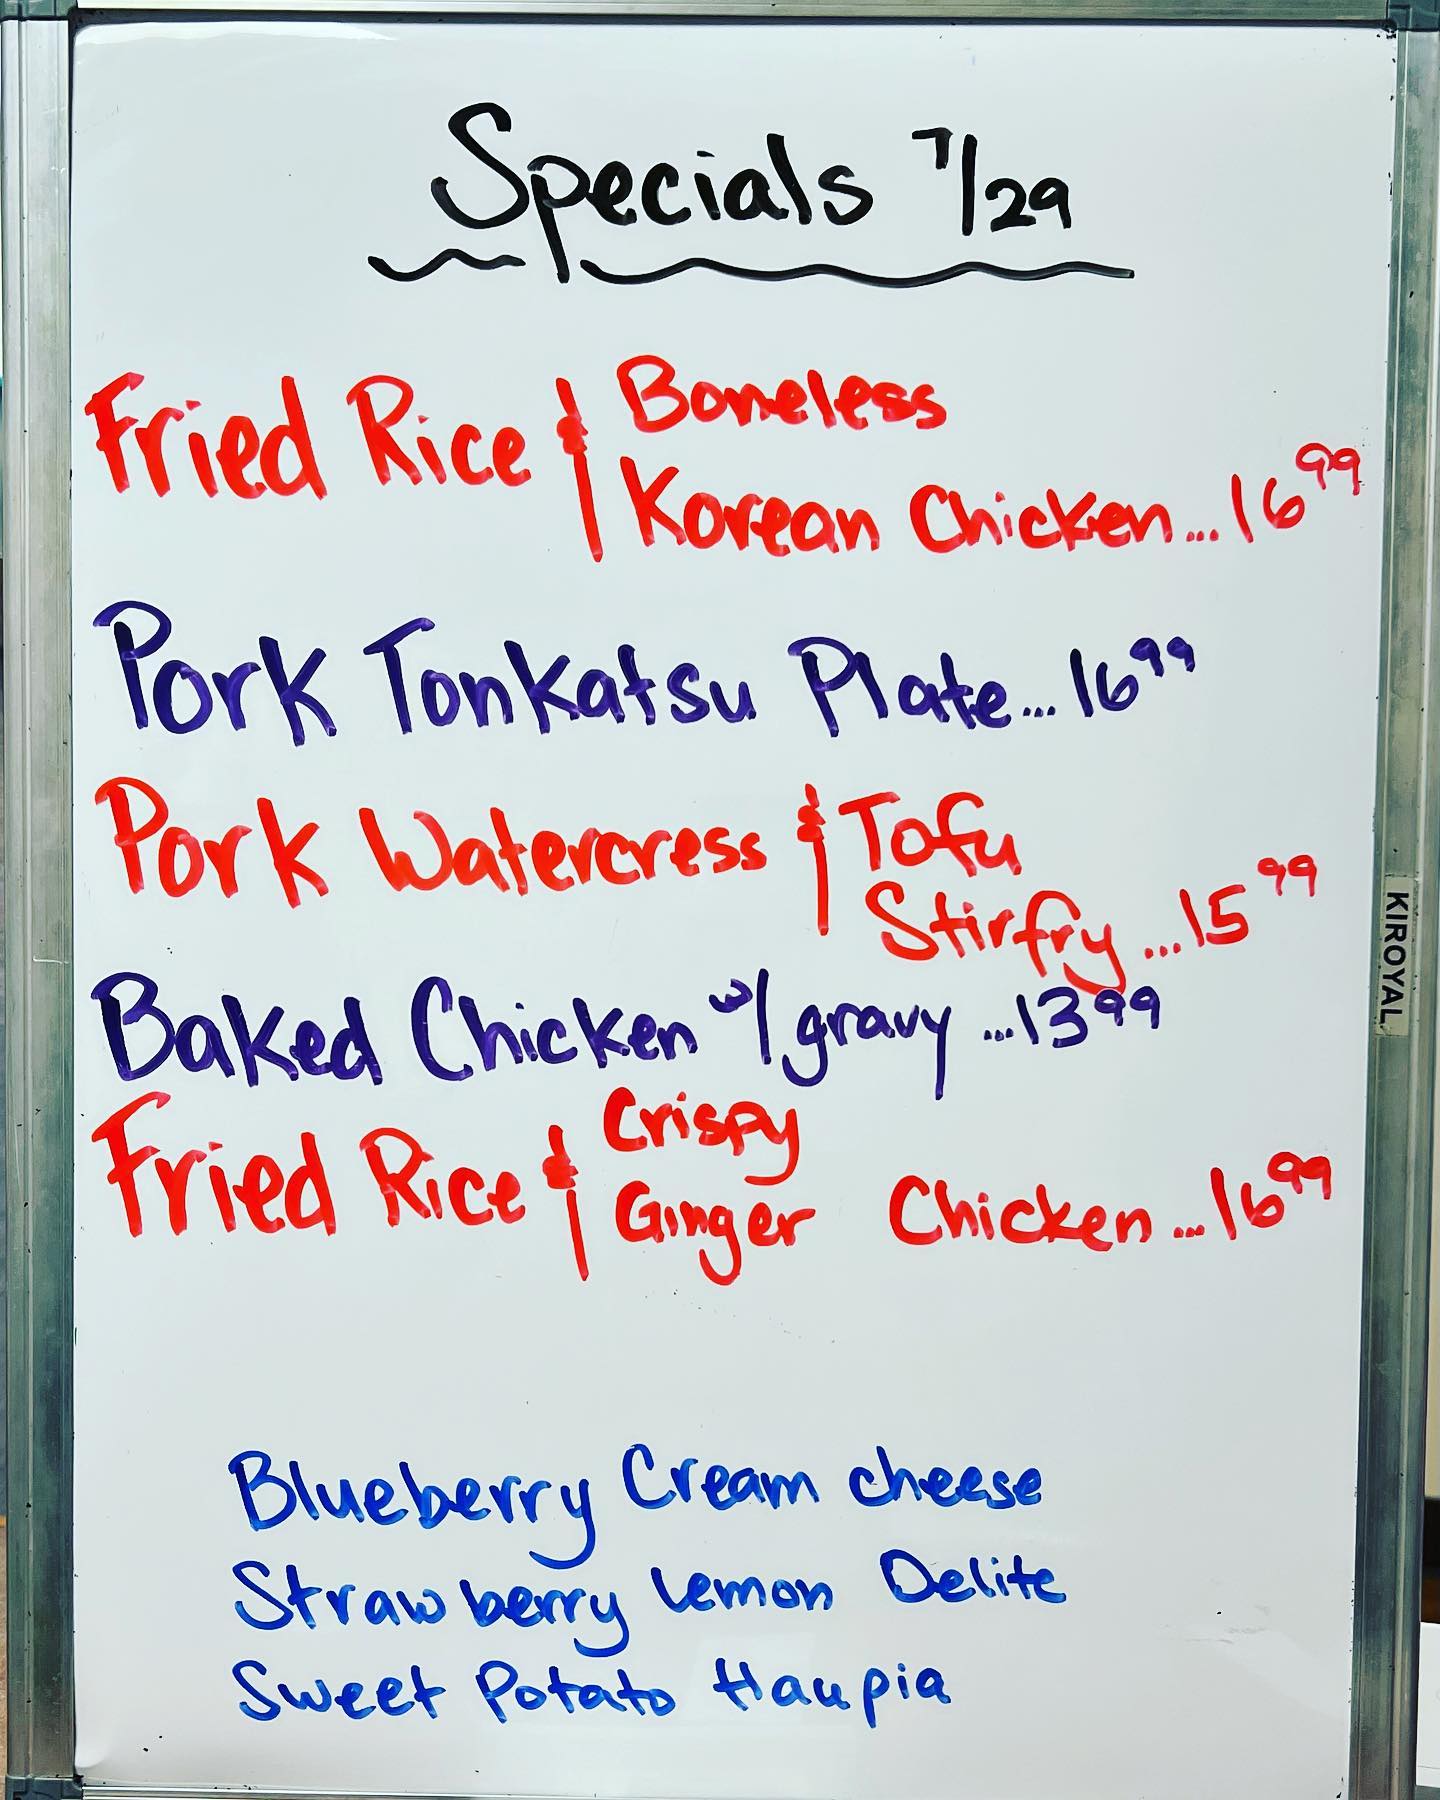 Specials 7/29
Fried Rice & Boneless
Korean Chicken...16⁹⁹
Pork Tonkatsu Plate...16⁹⁹
Pork Watercress & Tofu
Stirfry...15⁹⁹
Baked Chicken w/ gravy...13⁹⁹
Fried Rice & Crispy
Ginger Chicken...16⁹⁹
Blueberry Cream cheese
Strawberry Lemon Delite
Sweet Potato Haupia
KIROYAL